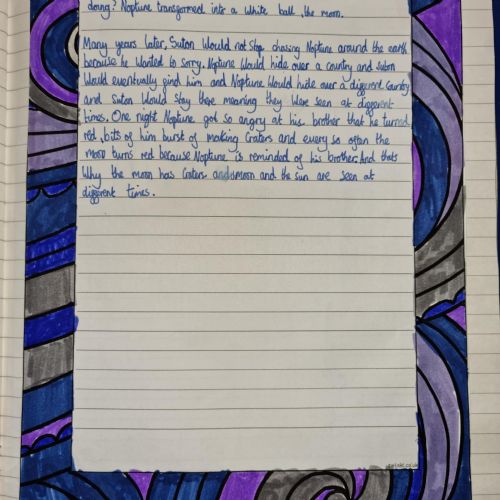 doing? Neptune transformed into a white ball, the moon.
Many years later, Suton Would not Stop chasing Neptune around the earth
because he Wanted to Sorry. Neptune Would hide over a country and suton
Would eventually find him and Neptune Would hide over a different Country
and Suton Would Stay there meaning they Were seen at different
times. One night Neptune got so angry at his brother that he turned
red, bits of him burst of making Craters and every so often the
moon turns red because Neptune is reminded of his brother. And thats
Why the moon has Craters and moon and the sun are seen at
different times.